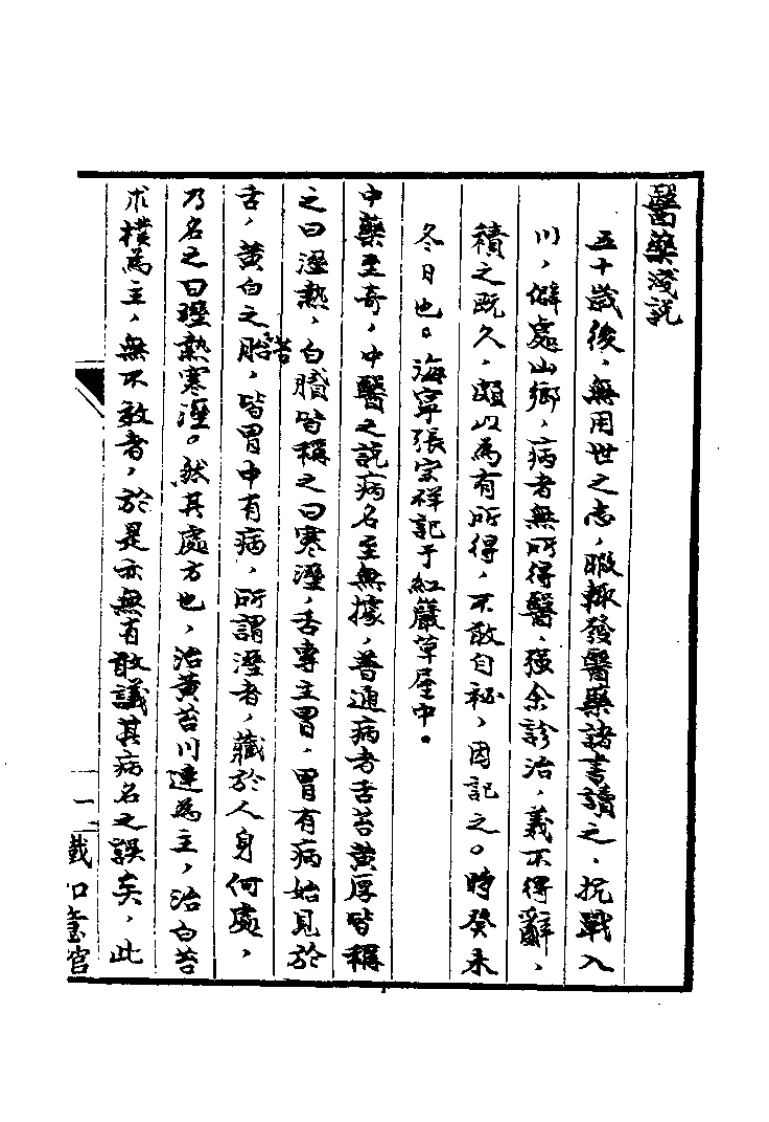 醫藥淺說
五十歲後、無用世之志、暇輒發醫藥諸書讀之、抗戰入
川、僻處山鄉、病者無所得醫、強余診治、義不得辭、
積之既久、頗以為有所得、不敢自秘、因記之。時癸未
冬日也。海寧張宗祥記于紅巖草屋中。
中藥至奇、中醫之說病名至無據、普通病者舌苔黃厚皆稱
之曰溼熱、白膩皆稱之曰寒溼、舌專主胃、胃有病始見於
舌、黃白之胎、皆胃中有病、所謂溼者、藏於人身何處、
苔
乃名之曰溼熱寒溼。然其處方也、治黃苔川連為主、治白苔
朮樸為主、無不效者、於是亦無有敢議其病名之誤矣、此
一
鐵如意館